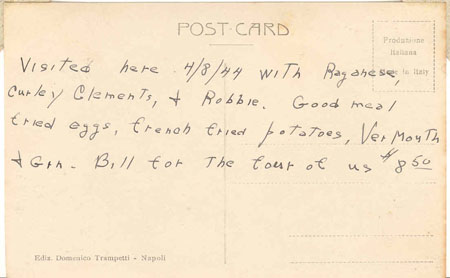 POST-CARD
Produzione
Italiana
Made in Italy
Visited here 4/8/44 with Raganese,
Curley Clements, & Robbie. Good meal
fried eggs, french fried potatoes, Vermouth
& Gin. Bill for the four of us $8 50
Ediz. Domenico Trampetti - Napoli